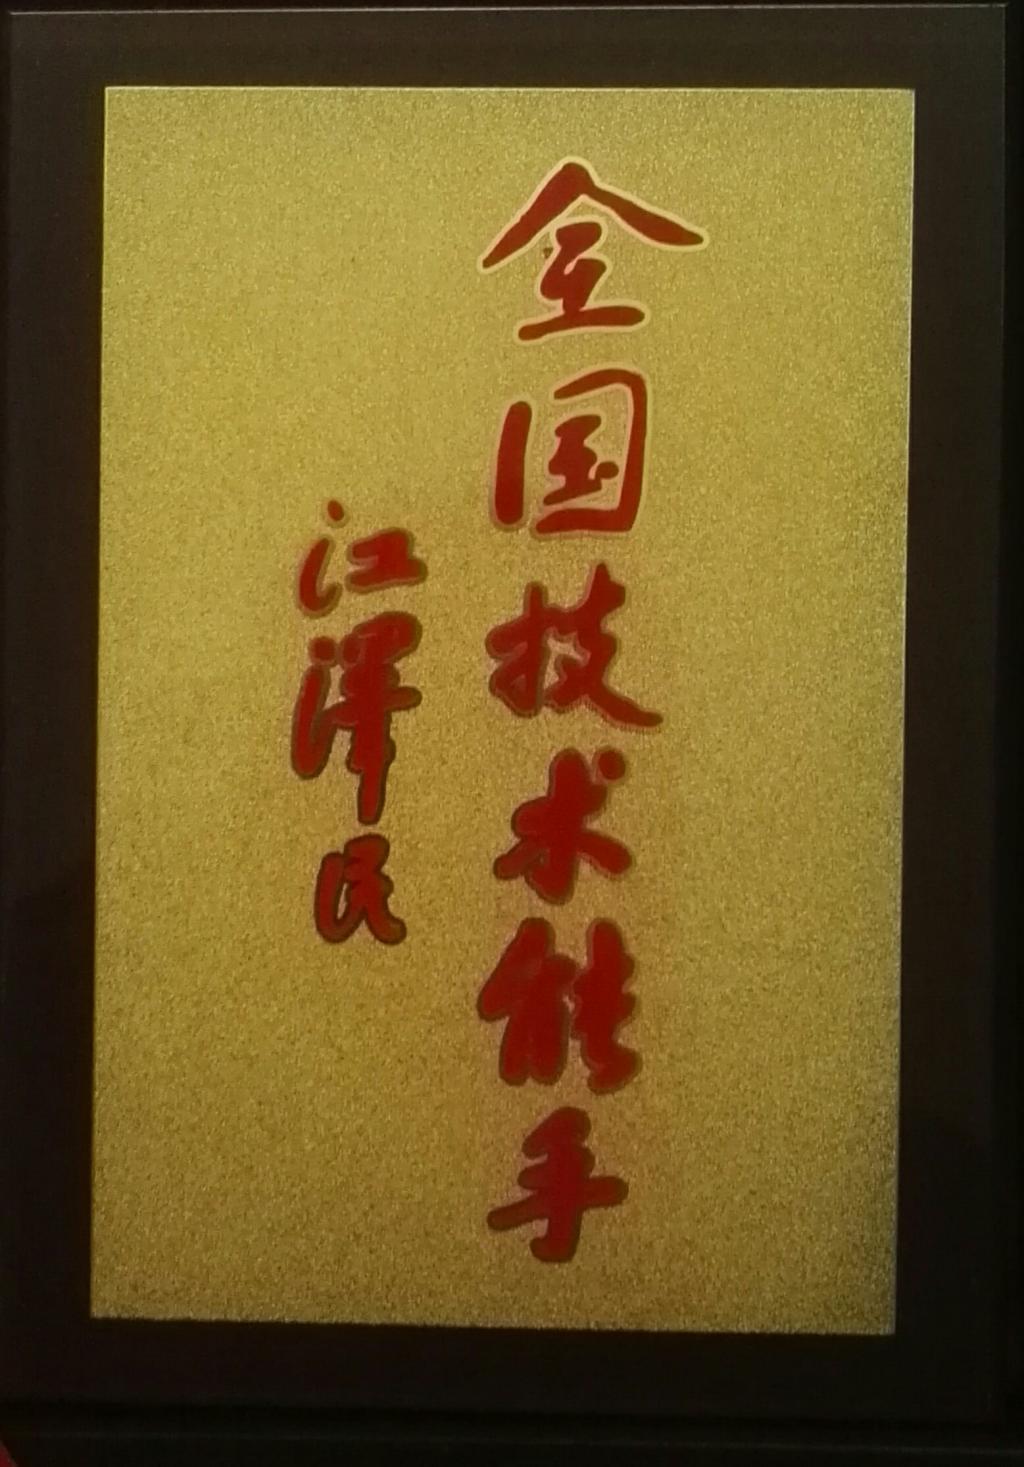 全国技术能手
江泽民